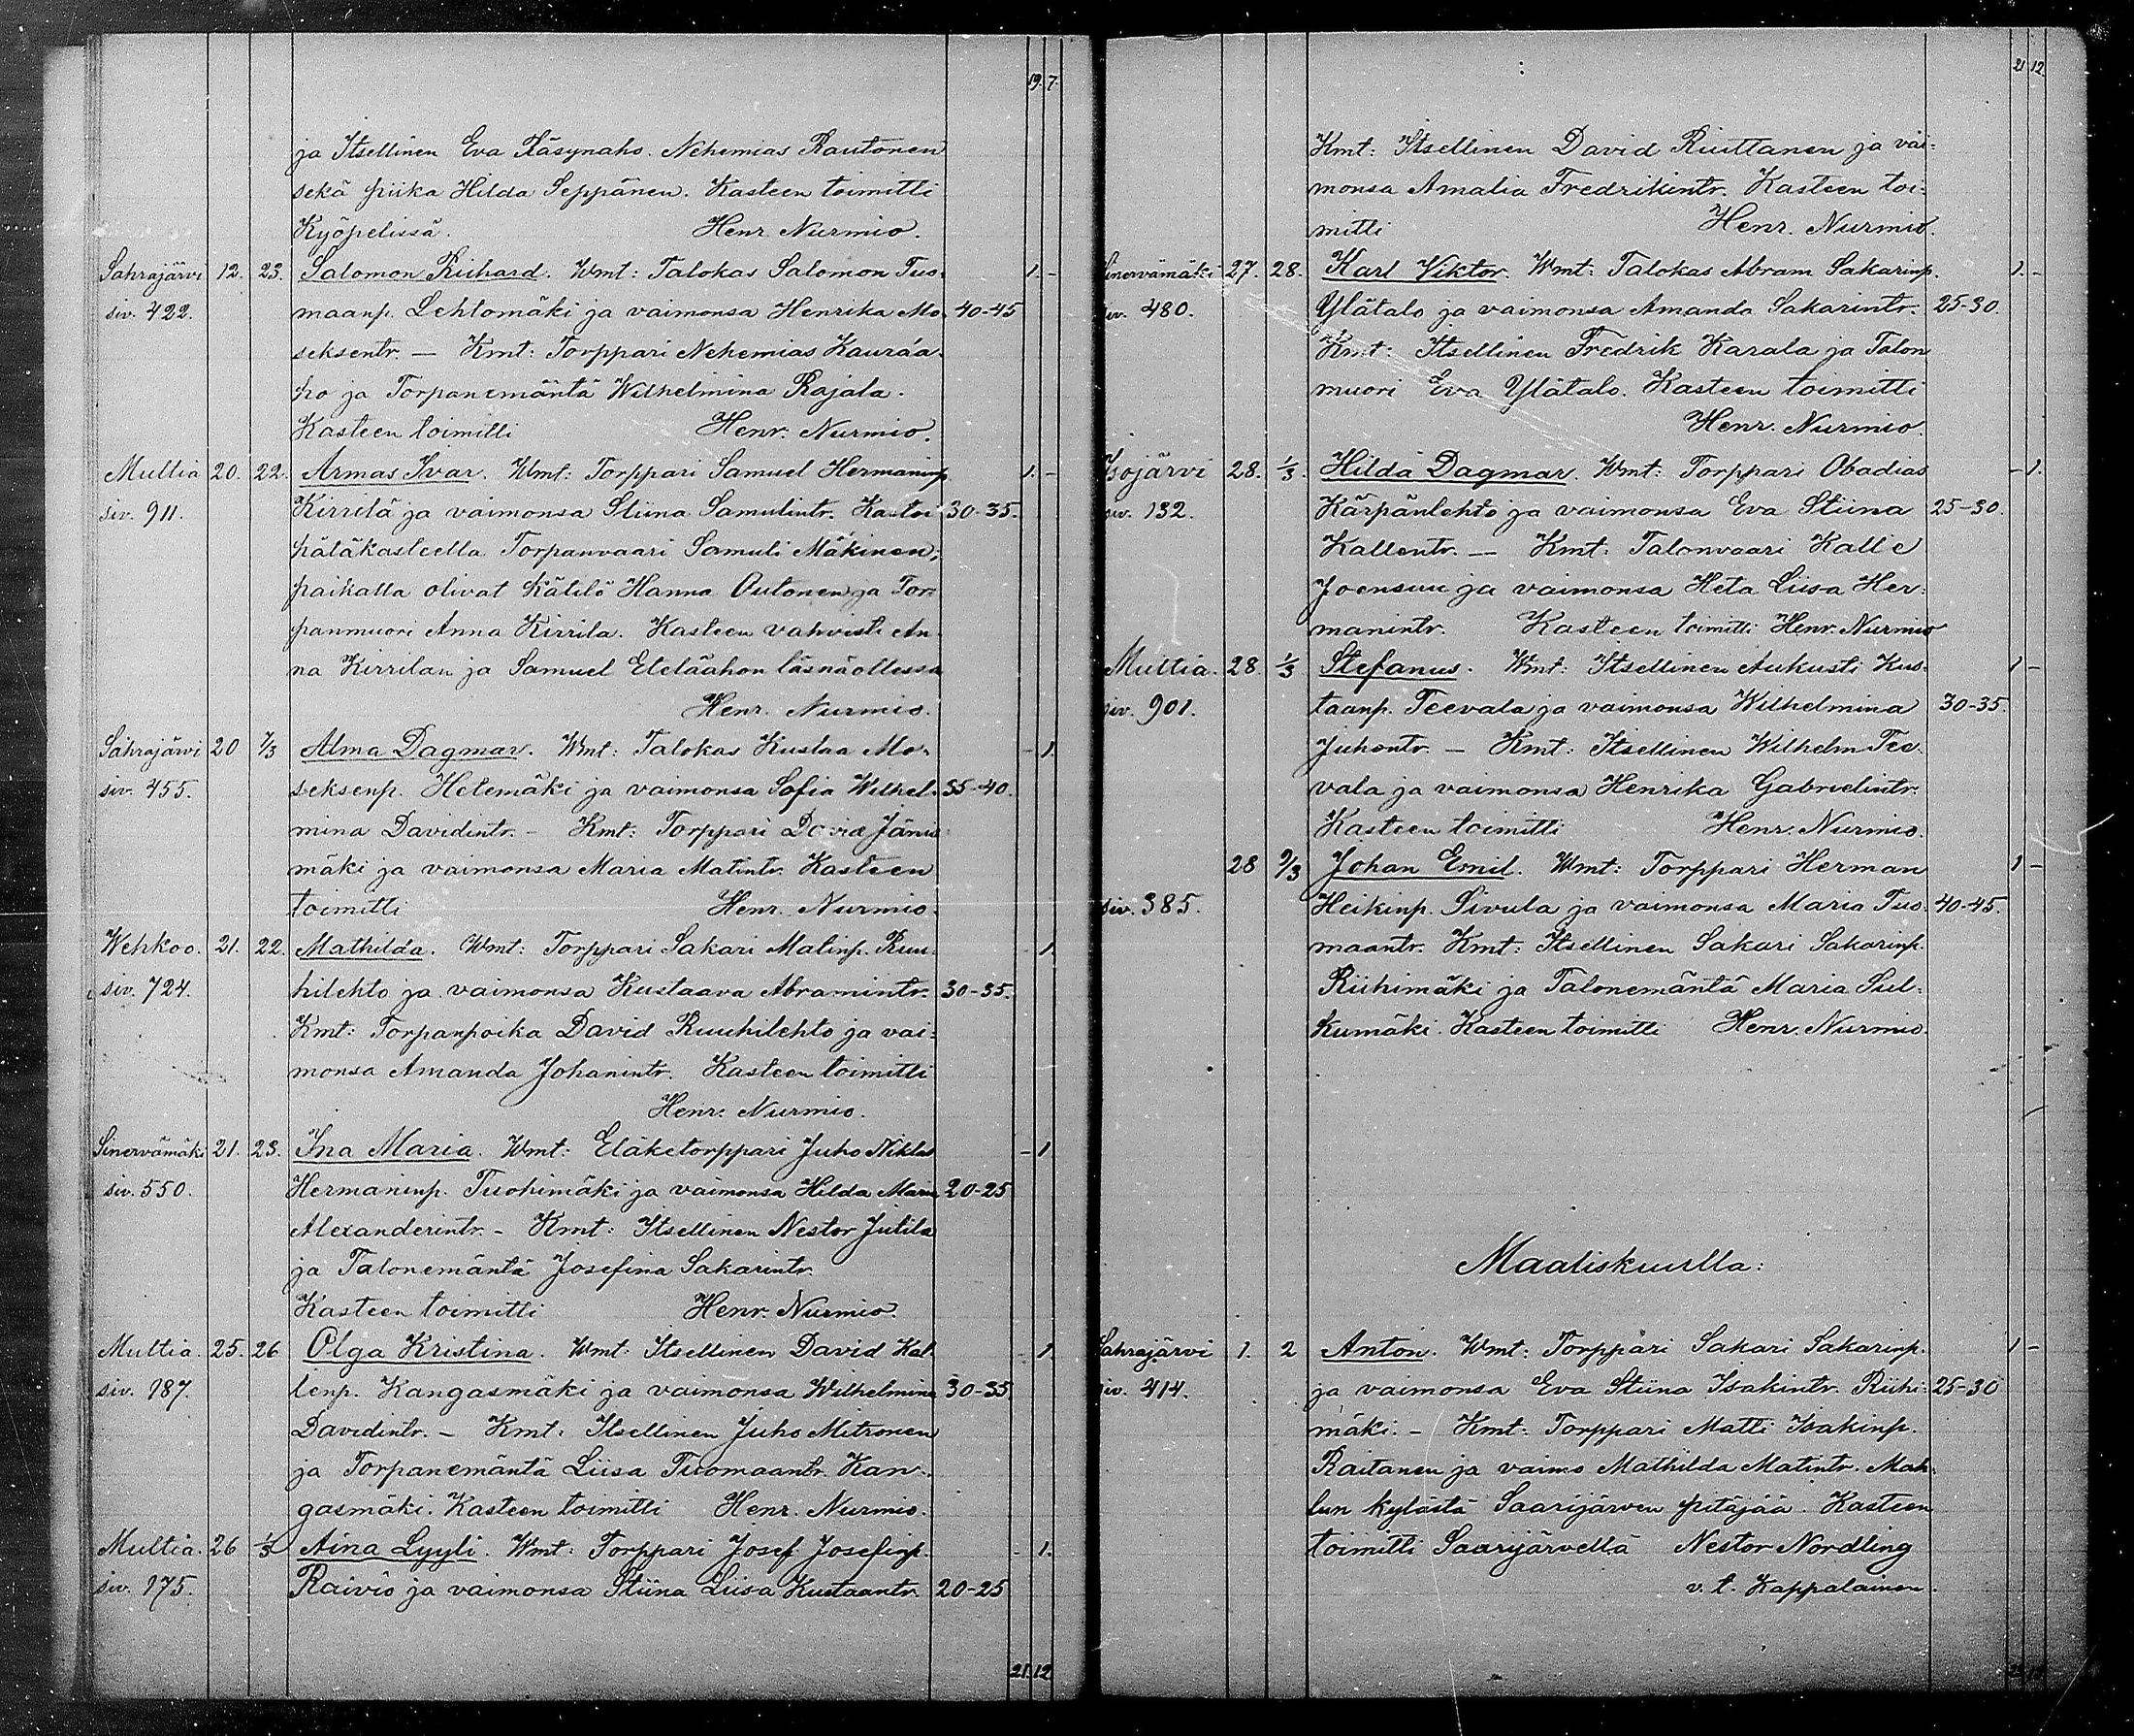 19. 7.
ja Itsellinen Eva Käsynaho. Nehemias Rautonen
sekä piika Hilda Seppänen. Kasteen toimitti
Kyöpelissä. Henr. Nurmio.
Sahrajärvi 12. 23. Salomon Richard. Wmt: Talokas Salomon Tuo- 1. -
siv. 422. maanp. Lehtomäki ja vaimonsa Henrika Mo- 40-45
seksentr. — Kmt: Torppari Nehemias Kauraa-
ho ja Torpanemäntä Wilhelmina Rajala.
Kasteen toimitti Henr. Nurmio.
Multia 20. 22. Armas Ivar. Wmt: Torppari Samuel Hermaninp. 1. -
siv. 911. Kirrilä ja vaimonsa Stiina Samulintr. Kastoi 30-35.
hätäkasteella Torpanvaari Samuli Mäkinen;
paikalla olivat kätilö Hanna Outonen ja Tor-
panmuori Anna Kirrila. Kasteen vahvisti An-
na Kirrilan ja Samuel Eteläahon läsnäollessa
Henr. Nurmio.
Sahrajärvi 20 7/3 Alma Dagmar. Wmt: Talokas Kustaa Mo- - 1.
siv. 455. seksenp. Hetemäki ja vaimonsa Sofia Wilhel- 35-40.
mina Davidintr. - Kmt: Torppari David Jänis-
mäki ja vaimonsa Maria Matintr. Kasteen
toimitti Henr. Nurmio.
Wehkoo. 21. 22. Mathilda. Wmt: Torppari Sakari Matinp. Ruu- - 1.
siv. 724. hilehto ja vaimonsa Kustaava Abramintr. 30-35.
Kmt: Torpanpoika David Ruuhilehto ja vai-
monsa Amanda Johanintr. Kasteen toimitti
Henr. Nurmio.
Sinervämäki 21. 23. Ina Maria. Wmt: Eläketorppari Juho Niklas - 1
siv. 550. Hermaninp. Tuohimäki ja vaimonsa Hilda Maria 20-25
Alexanderintr. - Kmt: Itsellinen Nestor Jutila
ja Talonemäntä Josefina Sakarintr.
Kasteen toimitti Henr. Nurmio.
Multia. 25. 26 Olga Kristina. Wmt. Itsellinen David Kal- - 1.
siv. 187. lenp. Kangasmäki ja vaimonsa Wilhelmina 30-35.
Davidintr. - Kmt: Itsellinen Juho Mitronen
ja Torpanemäntä Liisa Tuomaantr. Kan-
gasmäki. Kasteen toimitti Henr. Nurmio.
Multia. 26 1/3 Aina Lyyli. Wmt: Torppari Josef Josefinp. - 1.
siv. 175. Raivio ja vaimonsa Stiina Liisa Kustaantr. 20-25
21. 12
21 12.
Kmt: Itsellinen David Riuttanen ja vai-
monsa Amalia Fredrikintr. Kasteen toi-
mitti Henr. Nurmio.
Sinervämäki 27. 28. Karl Viktor. Wmt: Talokas Abram Sakarinp. 1. -
siv. 480. Ylätalo ja vaimonsa Amanda Sakarintr. 25-30.
Kmt: Itsellinen Fredrik Karala ja Talon
muori Eva Ylätalo. Kasteen toimitti
Henr. Nurmio.
Isojärvi 28. 1/3. Hilda Dagmar. Wmt: Torppari Obadias - 1.
siv. 132. Kärpänlehto ja vaimonsa Eva Stiina 25-30.
Kallentr. — Kmt: Talonvaari Kalle
Joensuu ja vaimonsa Heta Liisa Her-
manintr. Kasteen toimitti Henr. Nurmio
Multia. 28 1/3 Stefanus. Wmt: Itsellinen Aukusti Kus- 1 -
siv. 901. taanp. Teevala ja vaimonsa Wilhelmina 30-35.
Juhontr. - Kmt: Itsellinen Wilhelm Tee-
vala ja vaimonsa Henrika Gabrielintr.
Kasteen toimitti Henr. Nurmio.
28 9/3 Johan Emil. Wmt: Torppari Herman 1 -
siv. 385. Heikinp. Sivula ja vaimonsa Maria Tuo- 40-45.
maantr. Kmt: Itsellinen Sakari Sakarinp.
Riihimäki ja Talonemäntä Maria Sul-
kumäki. Kasteen toimitti Henr. Nurmio.
Maaliskuulla:
Sahrajärvi 1. 2 Anton. Wmt: Torppari Sakari Sakarinp. 1 -
siv. 414. ja vaimonsa Eva Stiina Isakintr. Riihi- 25-30
mäki. - Kmt: Torppari Matti Isakinp.
Raitanen ja vaimo Mathilda Matintr. Mah-
lun kylästä Saarijärven pitäjää. Kasteen
toimitti Saarijärvellä Nestor Nordling
v. t. Kappalainen.